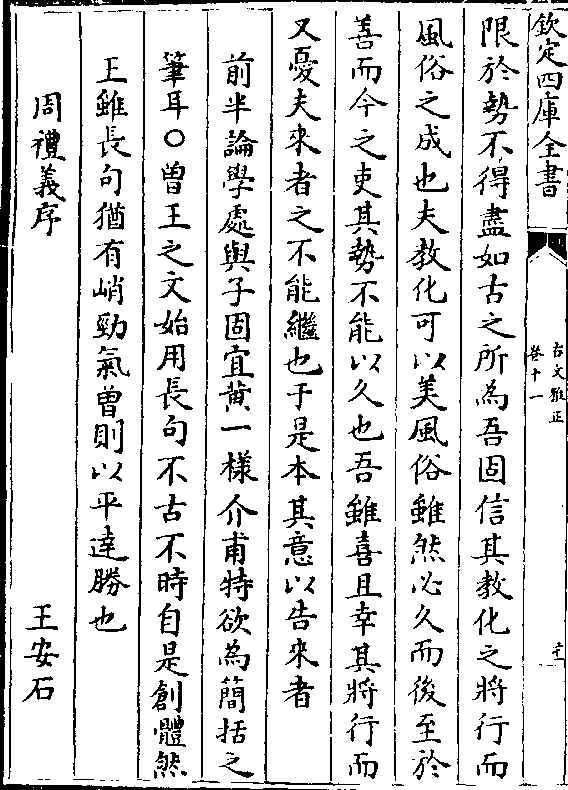 欽定四庫全書
古文雅正
卷十一
限於勢不得盡如古之所為吾固信其教化之將行而
風俗之成也夫教化可以美風俗雖然必久而後至於
善而今之吏其勢不能以久也吾雖喜且幸其將行而
又憂夫來者之不能繼也于是本其意以告來者
前半論學處與子固宜黄一樣介甫特欲為簡括之
筆耳○曽王之文始用長句不古不時自是創體然
王雖長句猶有峭勁氣曽則以平逹勝也
周禮義序
王安石